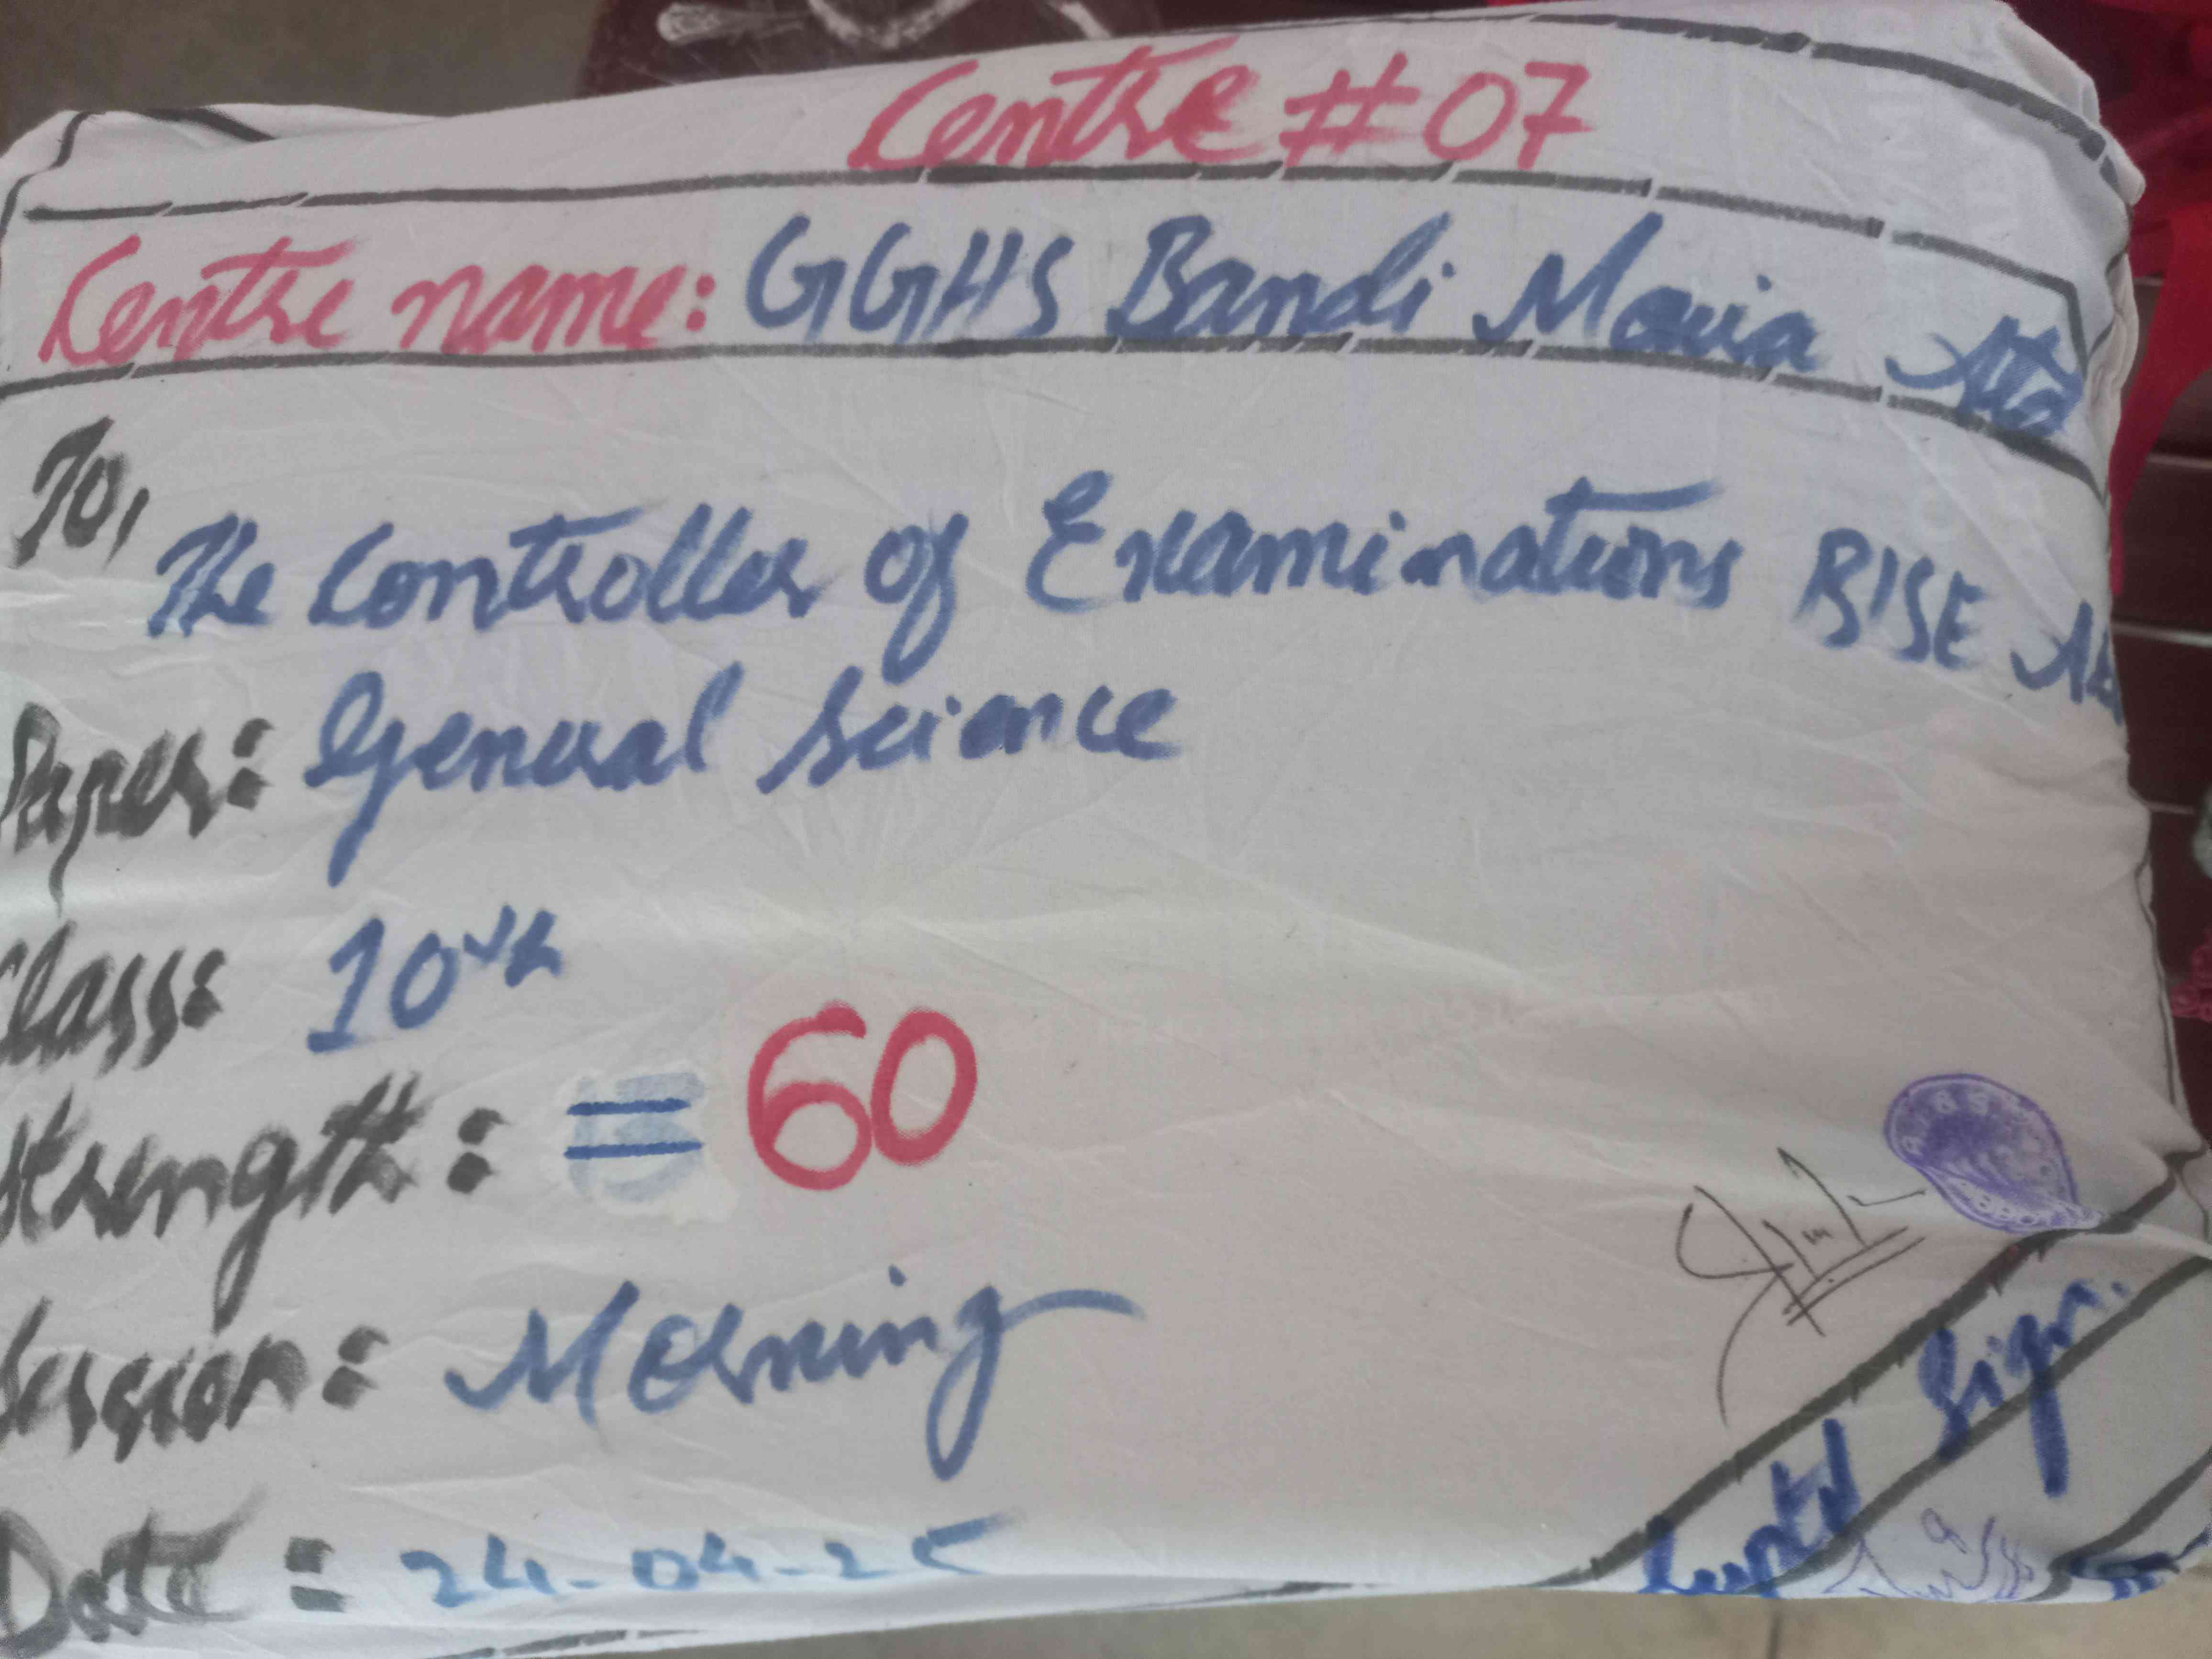 Centre #07
Centre name: GGHS Bandi Mouia Atd
To,
The Controller of Examinations BISE
Paper: General Science
Class: 10th
Strength: = 60
Session: Morning
Date: 24-04-25
Suptd Sign.